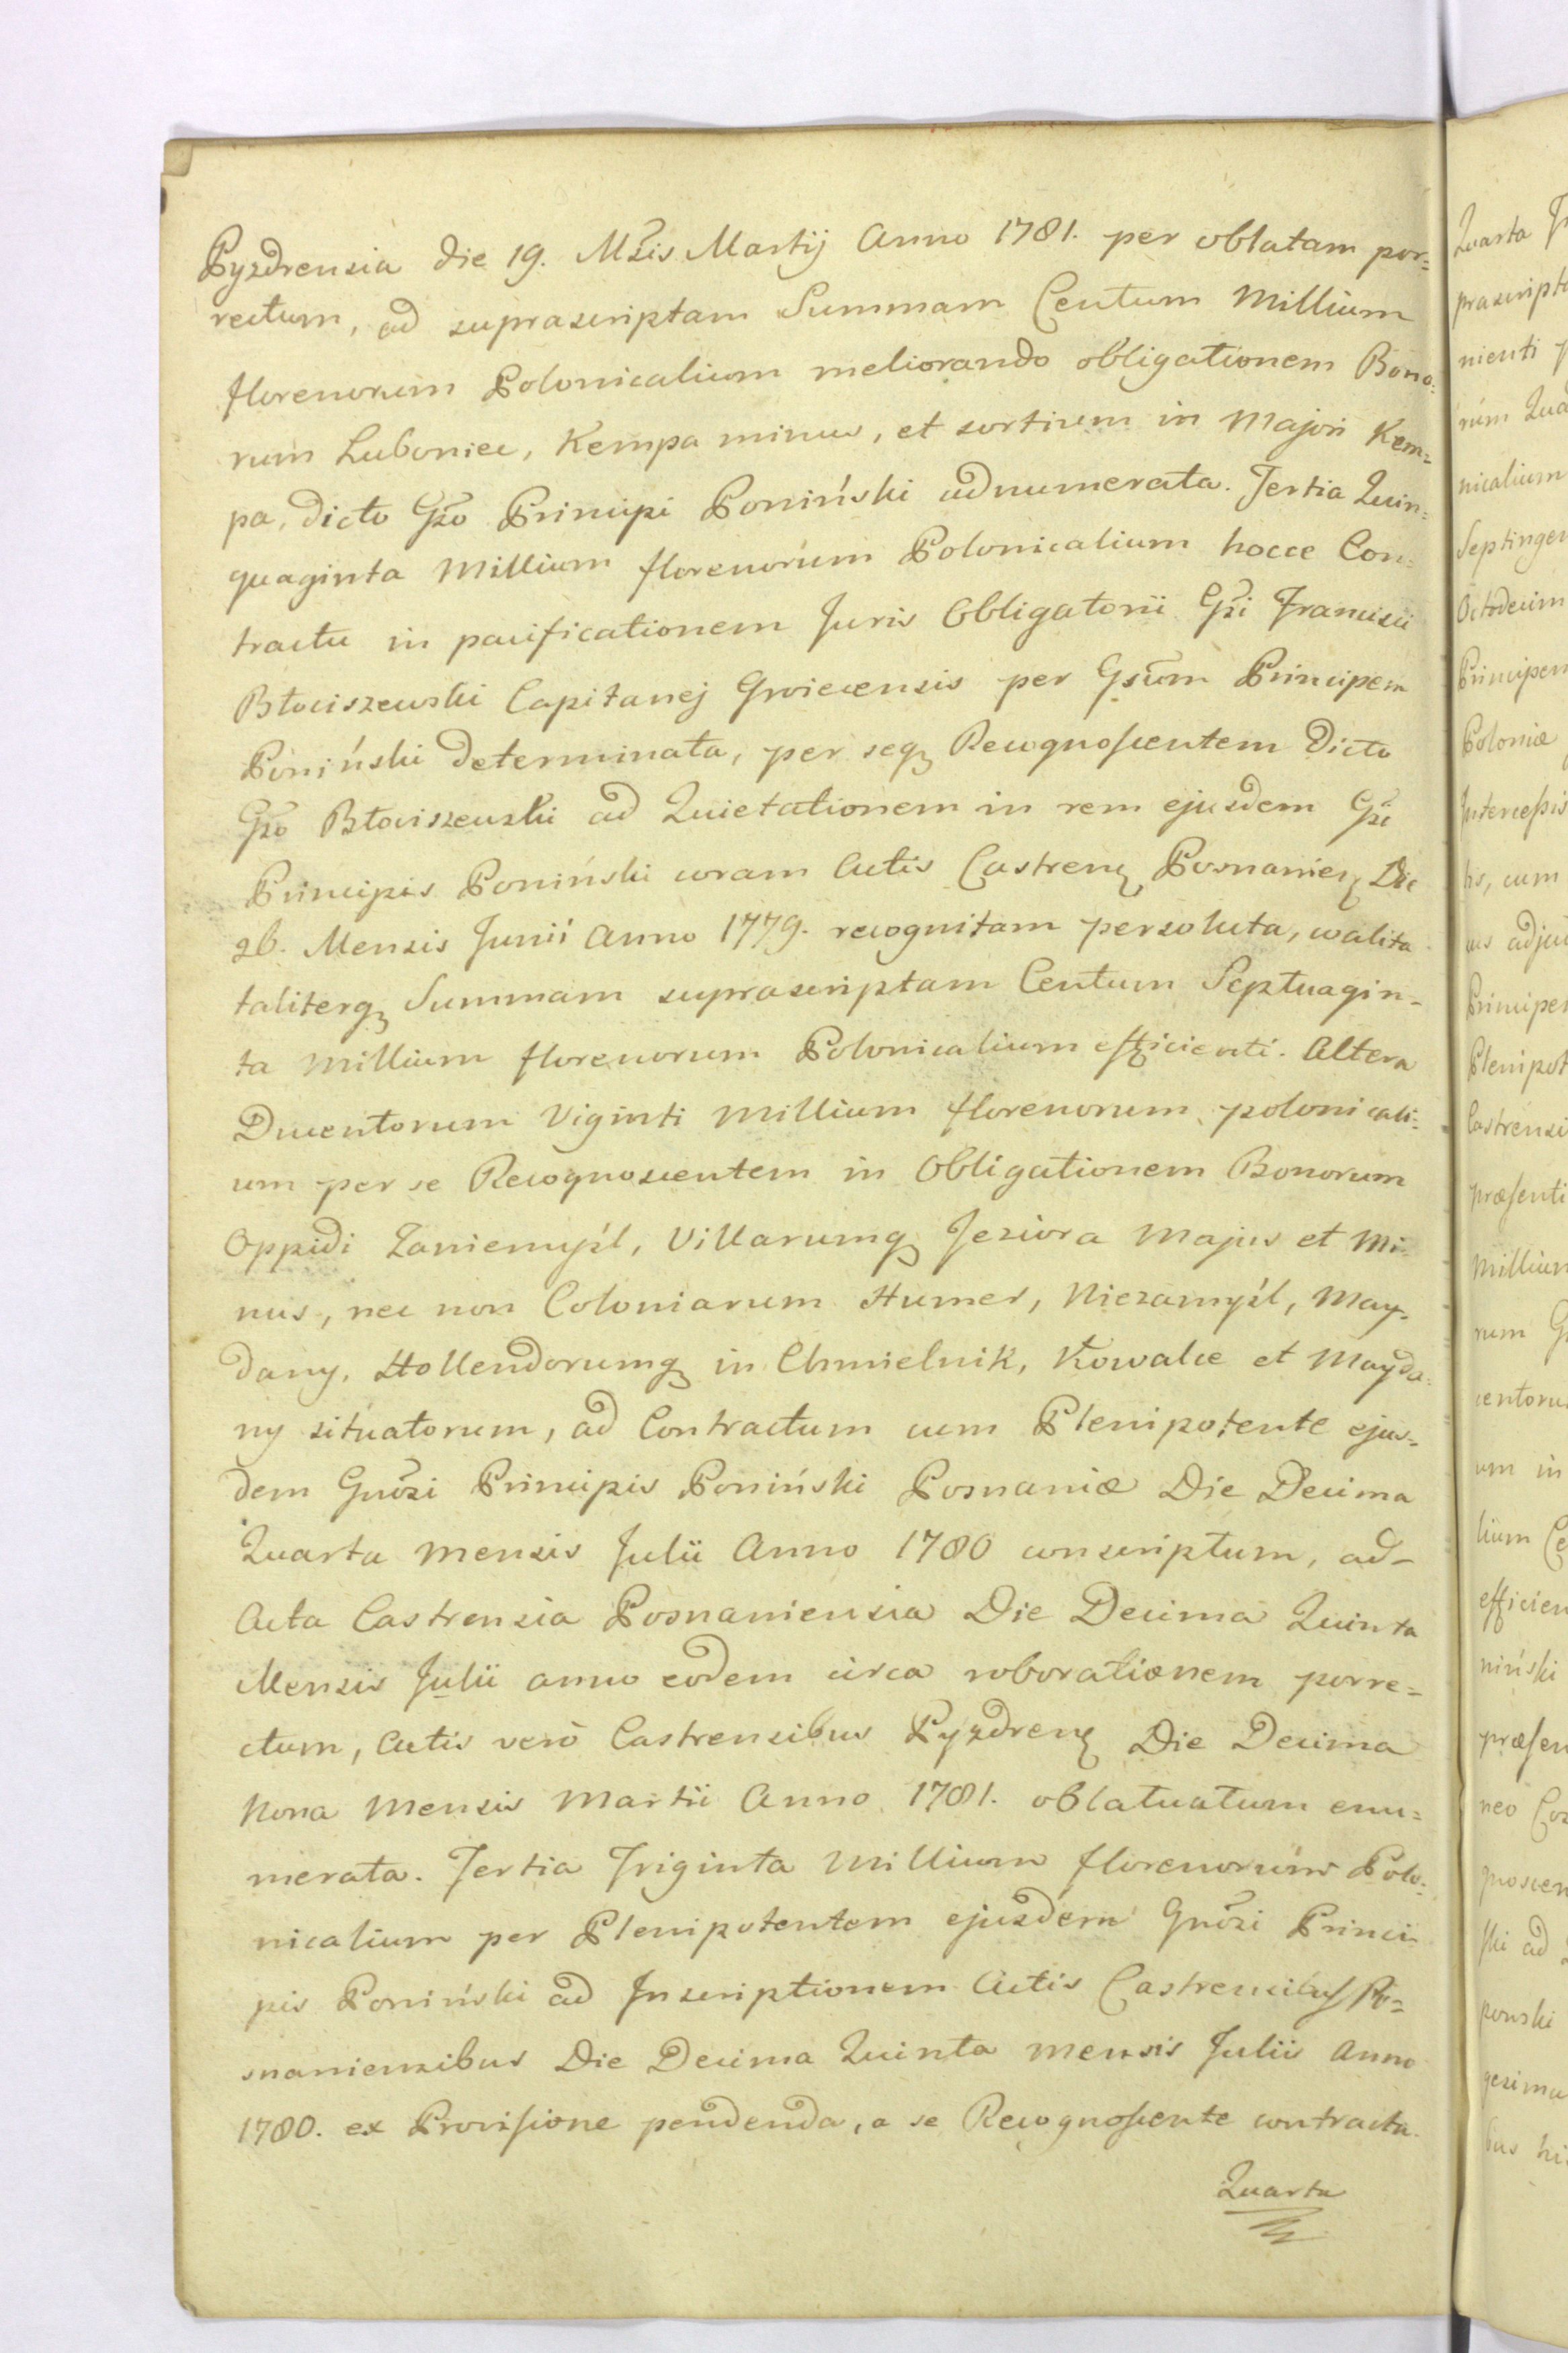 Pyzdrensia die 19. Msis Martij Anno 1781. per oblatam por=
rectum, ad suprascriptam Summam Centum Millium
florenorum Polonicalium meliorando obligationem Bono=
rum Luboniec, Kempa minus, et sortium in Majori Kem=
pa, dicto Gso Principi Poniński adnumerata. Tertia Quin=
quaginta Millium florenorum Polonicalium hocce Con=
tractu in pacificationem Juris Obligatorii Gsi Francisci
Błociszewski Capitanej Gnieccensis per Gsum Principem
Poniński determinata, per seqz Recognoscentem dicto
Gso Błociszewski ad Quietationem in rem ejusdem Gsi
Principis Poniński coram Actis Castren Posnanien Die
26. Mensis Junii Anno 1779. recognitam persoluta, coalita
taliterqz Summam suprascriptam Centum Septuagin-
ta Millium florenorum Polonicalium efficienti. Altera
Ducentorum Viginti Millium florenorum polonicali=
um per se Recognoscentem in Obligationem Bonorum
Oppidi Zaniemyśl, Villarumqz Jeziora Majus et Mi=
nus, nec non Coloniarum Humer, Niezamyśl, May-
dany, Hollendorumqz in Chmielnik, Kowalce et Mayda=
ny situatorum, ad Contractum cum Plenipotente ejus=
dem Gnosi Principis Poniński Posnaniæ Die Decima
Quarta Mensis Julii Anno 1780 conscriptum, ad-
Acta Castrensia Posnaniensia Die Decima Quinta
Mensis Julii anno eodem circa roborationem porre=
ctum, Actis verò Castrensibus Pyzdren Die Decima
Nona Mensis Martii Anno 1781. oblatuatum enu=
merata. Tertia Triginta Millium florenorum Polo=
nicalium per Plenipotentem ejusdem Gnosi Princi=
pis Poniński ad Inscriptionem Actis Castrensibus Po=
snaniensibus Die Decima Quinta Mensis Julii Anno
1780. ex Provisione pendenda, a se Recognoscente contracta.
Quarta
Quarta
nienti
nicalium
Septingen
Octodecim
Principem
Poloniæ
Principem
Plenipot
Castrensi
præsenti
Millium
um in
efficien
niński
præsen